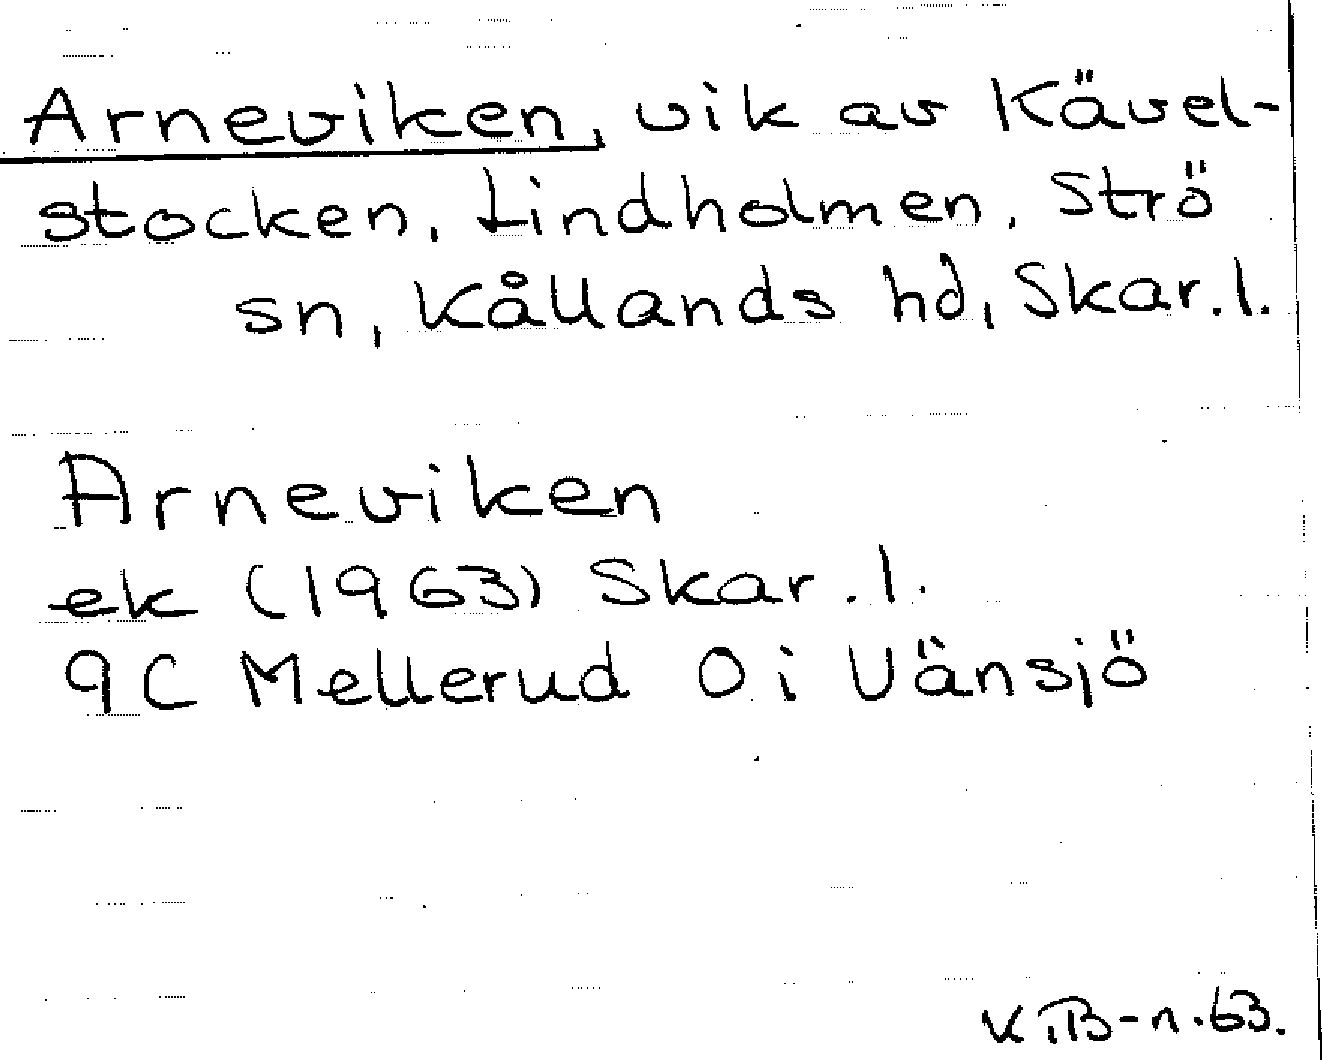 Arneviken, vik av Kävel-
stocken, Lindholmen, Strö
sn, Kållands hd, Skar. l.
Arneviken
ek (1963) Skar. l.
9C Mellerud Ö i Vänsjö
K.B-n. 63.